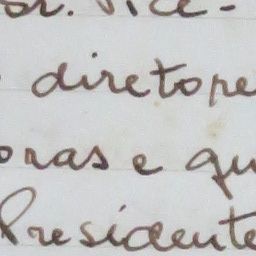 Sr. Vice-
diretore
oras e qu
Presidente